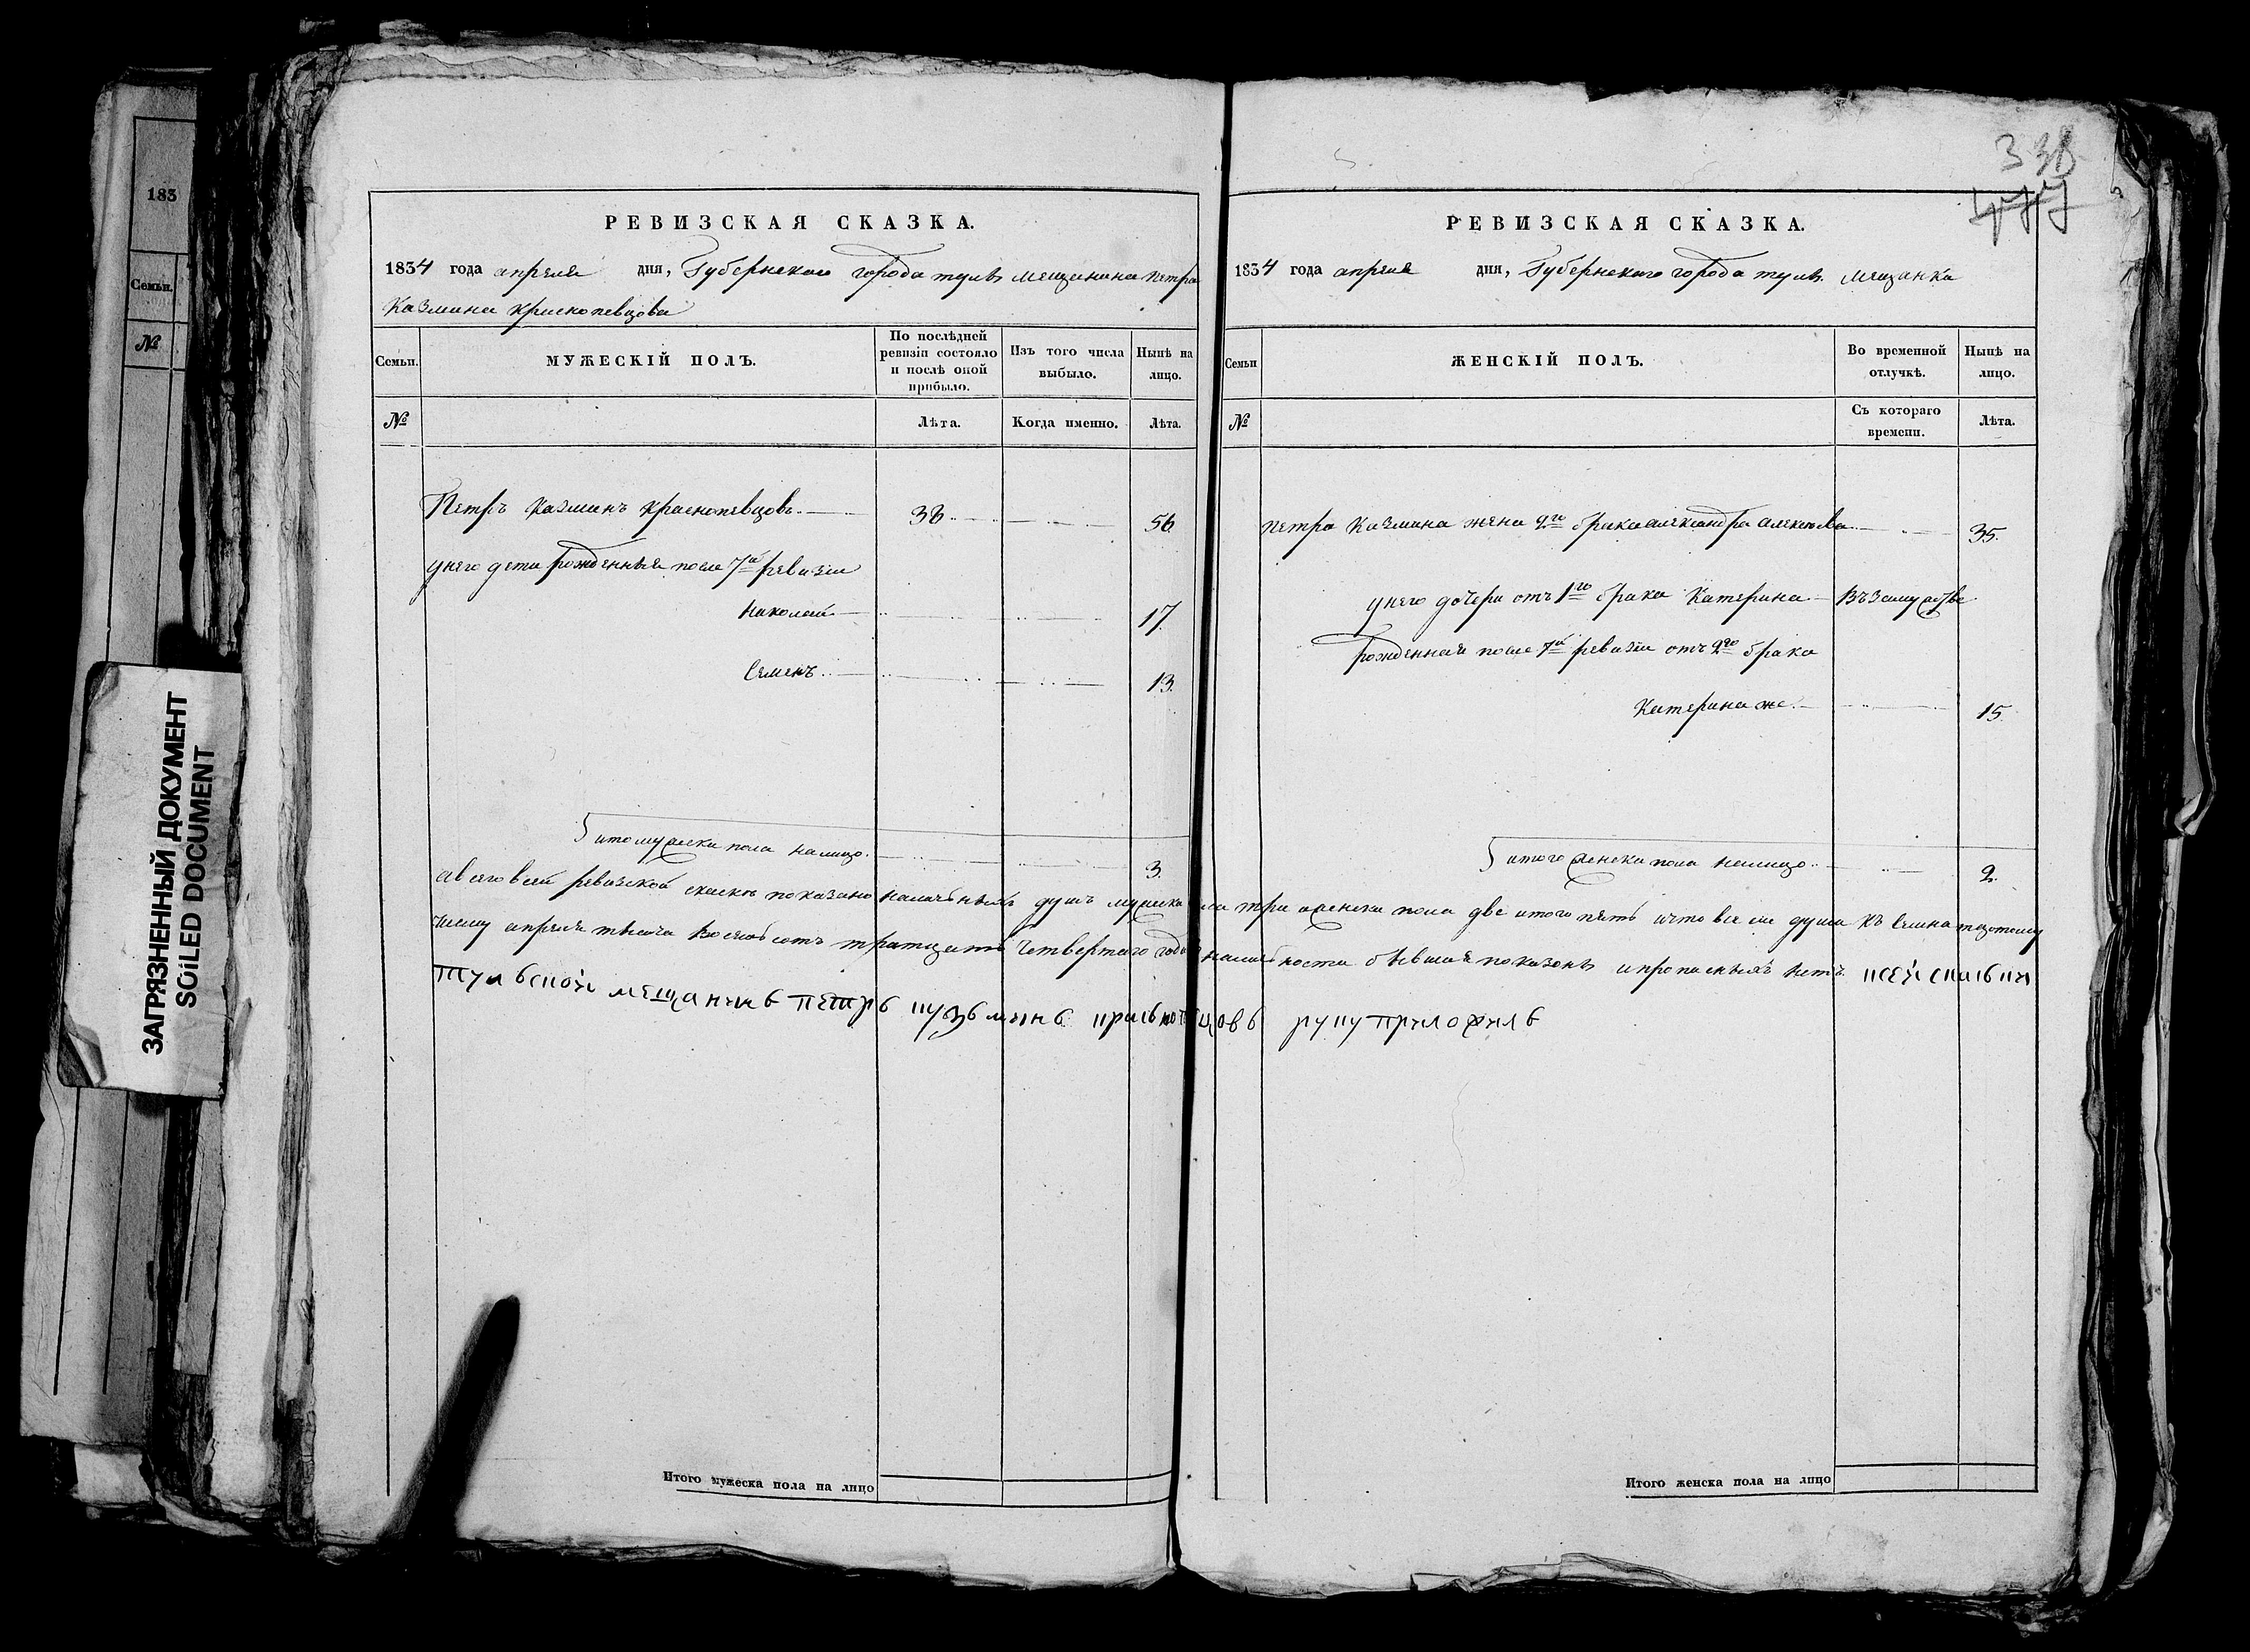 183
Семьи.
№
ЗАГРЯЗНЕННЫЙ ДОКУМЕНТ
SOILED DOCUMENT
РЕВИЗСКАЯ СКАЗКА.
1834 года апреля дня, Губернскаго города тулы мещанина петра
Казмина краснопевцова
Семьи.
МУЖЕСКІЙ ПОЛЪ.
По послѣдней ревизіи состояло и послѣ оной прибыло.
Изъ того числа выбыло.
Нынѣ на лицо.
№
Лѣта.
Когда именно.
Лѣта.
Петръ Казминъ краснопевцовъ. 38 56
унего дети рожденныя после 7й ревизіи
Николай 17.
Семенъ 13.
итого мужеска пола налицо. 3.
Итого мужеска пола на лицо
338
477
РЕВИЗСКАЯ СКАЗКА.
1834 года апреля дня, Губернскаго города тулы мещанка
Семьи
ЖЕНСКІЙ ПОЛЪ.
Во временной отлучкѣ.
Нынѣ на лицо.
№
Съ котораго времени.
Лѣта.
петра Казмина жена 2го брака александра алексеева 35.
унего дочери отъ 1го брака Катерина Въ замужстве
рожденная после 7й ревизіи отъ 2го брака
Катерина же. 15.
итого женска пола налицо 2.
авсего всей ревизской скаске показано наличныхъ душъ мужска пола три аженска пола две итого пять ичто все сіи души къ
числу апреля тысяча восемьсотъ тритцать четвертаго года наличности бывшая показонъ ипрописныхъ нетъ ксеи скаски
тульскои мещанинъ петръ кузьминъ краснопевцовъ руку приложилъ
Итого женска пола на лицо